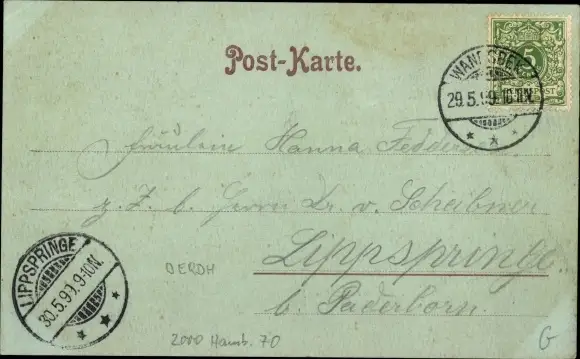 Post-Karte.
5
REICHSPOST
WANDSBEK
29.5.99.10-11N.
Fräulein Hanna Fedder
z. Z. b. Herrn Dr. v. Scheibner
Lippspringe
b. Paderborn.
LIPPSPRINGE
30.5.99.9-10N.
DERDH
2000 Hamb. 70
G